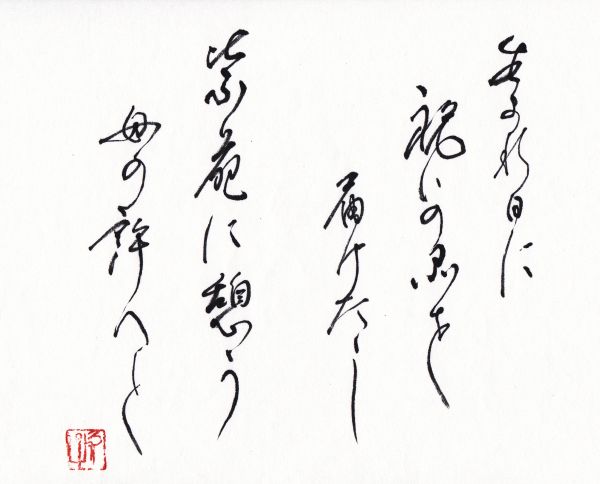 生まれ日に
祝いの品を
届けたし
紫苑に憩う
母の許へと